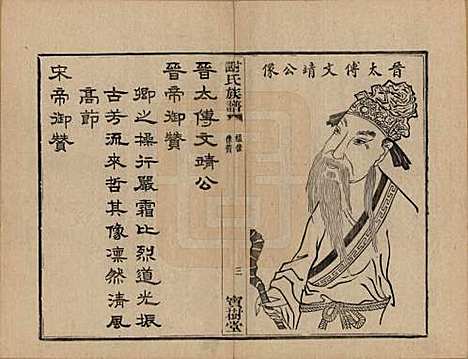 晉太傅文靖公像
謝氏族譜
福像
像贊
三
寶樹堂
晉太傅文靖公
晉帝御贊
卿之操行嚴霜比烈道光振
古芳流來哲其像凛然清風
高節
宋帝御贊